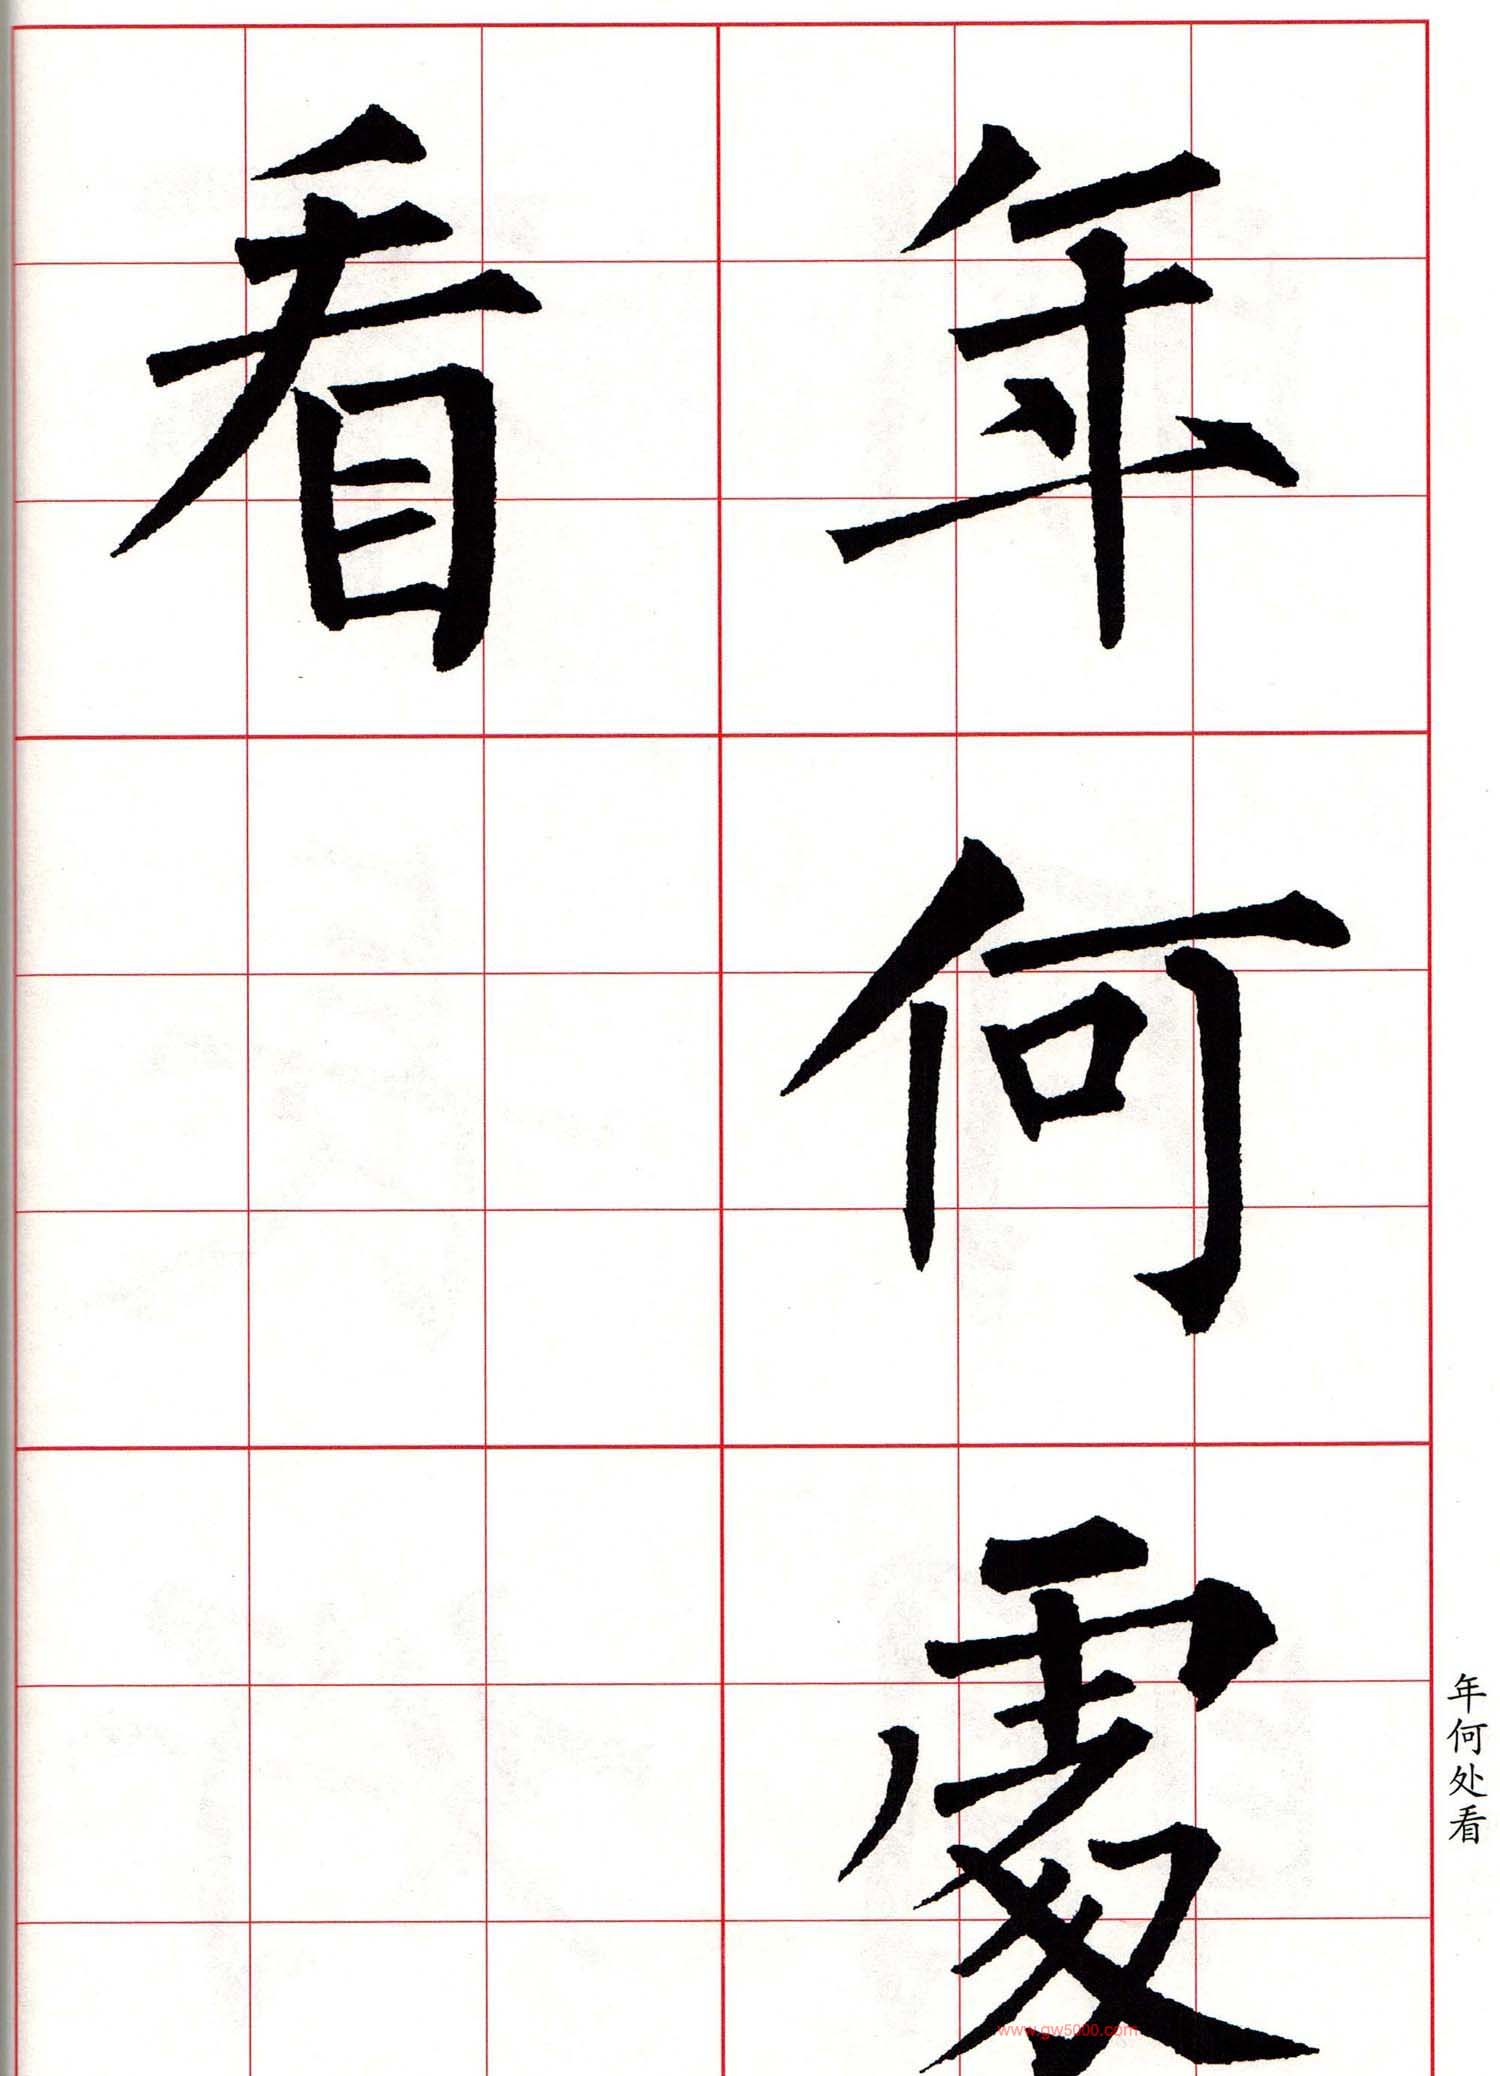 年何處
看
年何处看
www.gw5000.com